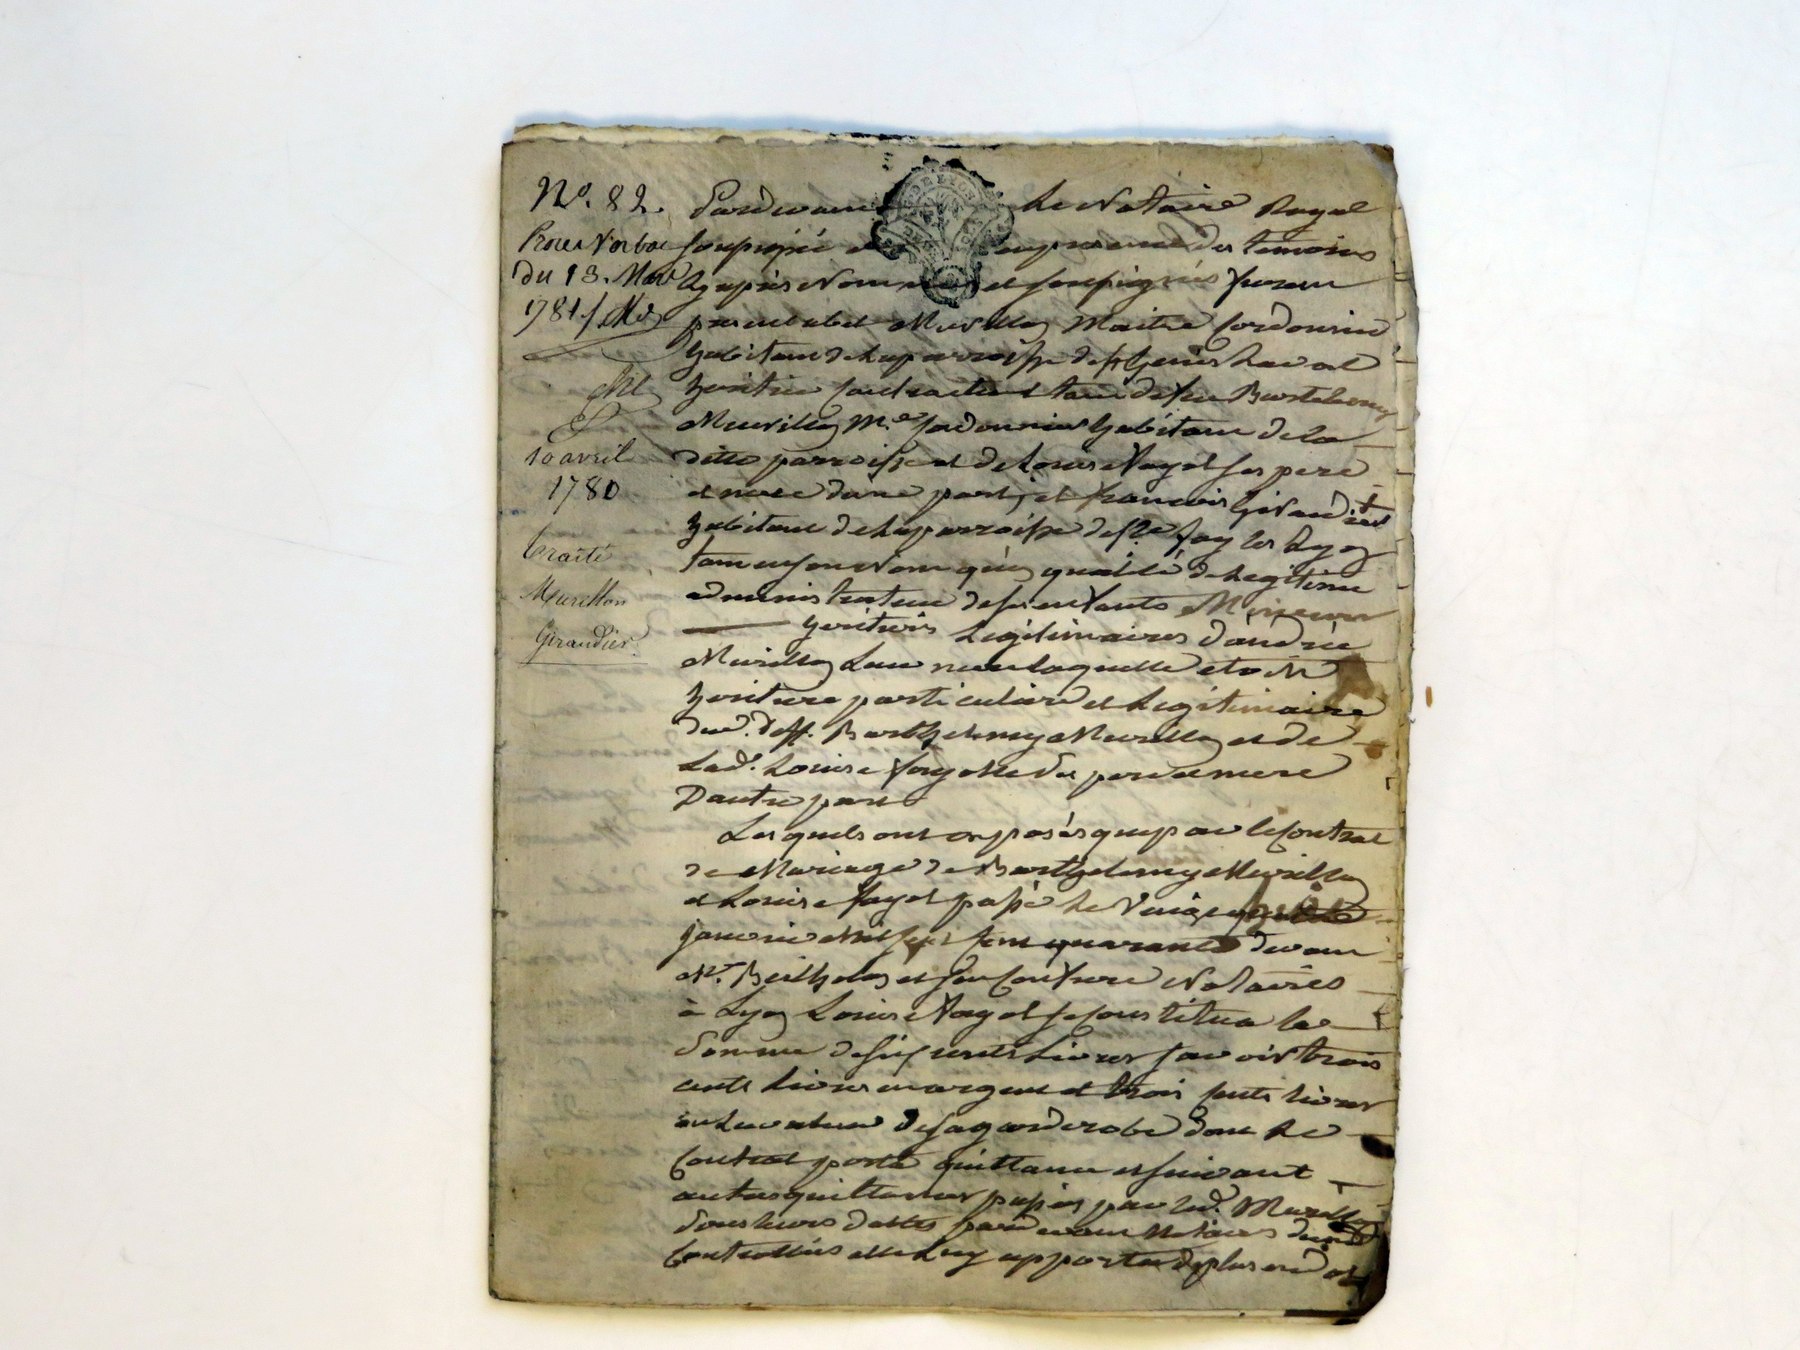 No. 82.
Proces Verbal
du 13. Mars
1781
10 avril
1780
traité
Murillon
Girandier
Pardevant le Notaire Royal
soussigné et en presence des temoins
cy apres Nommés et soussignés furent
presents Murillon Maitre Cordonnier
habitant de la parroisse de st Genis Laval
heritier de feu Barthelemy
Murillon Me. Cordonnier habitant de la
ditte parroisse et de Louise Fayet ses pere
et mere d'une part, et francois Girandier
habitant de la parroisse de ste foy les Lyon
tant en son Nom qu'en qualité de Legitime
administrateur de ses enfants Mineurs
heritiers Legitimaires d'andrée
Murillon Leur mere laquelle etoit
heritiere particuliere et Legitimaire
dud. deff. Barthelemy Murillon et de
Lad. Louise fayet ses pere et mere
D'autre part
Lesquels ont exposés que par le Contrat
de Mariage de Barthelemy Murillon
et Louise fayet passé le
janvier mil sept cent quarante devant
Me. Berthelon et son Confrere Notaires
à Lyon Louise Fayet se constitua la
somme de six cents Livres savoir trois
cents Livres en argent et trois cents livres
en la valeur de sa garderobe dont le
Contrat porte quittance et suivant
autres quittances passées par led. Murillon
sous leurs dattes pardevant Notaires
Controllées elle Luy apporta de plus en dot